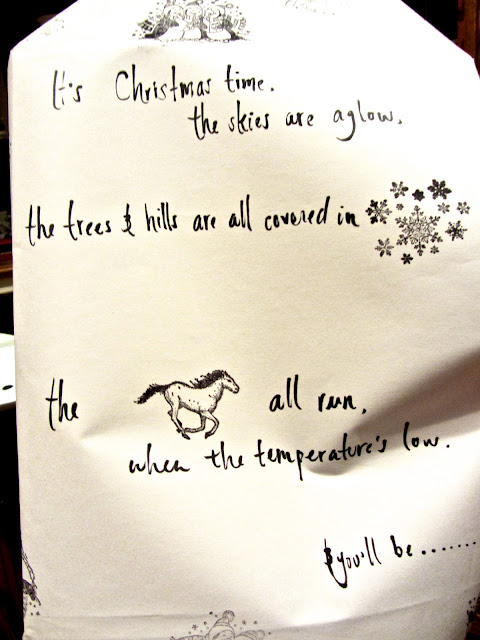 It's Christmas time.
the skies are aglow.
the trees & hills are all covered in
the all run,
when the temperature's low.
& you'll be........